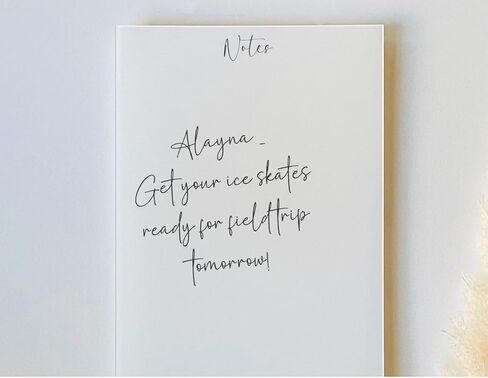 Notes
Alayna -
Get your ice skates
ready for fieldtrip
tomorrow!